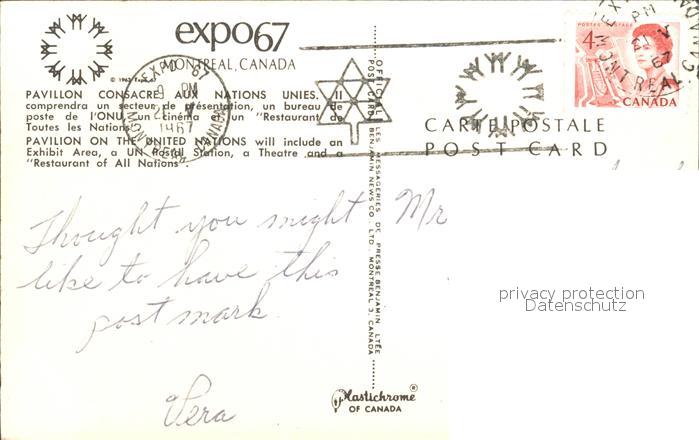 expo67
MONTREAL, CANADA
© 1963
PAVILLON CONSACRÉ AUX NATIONS UNIES. Il
comprendra un secteur de présentation, un bureau de
poste de l'ONU, un cinéma et un "Restaurant de
Toutes les Nations".
PAVILION ON THE UNITED NATIONS will include an
Exhibit Area, a UN Postal Station, a Theatre and a
"Restaurant of All Nations".
EXPO '67
9 PM
1967
MONTREAL CANADA
OFFICIAL POST CARD
LES MESSAGERIES DE PRESSE BENJAMIN LTÉE
BENJAMIN NEWS CO. LTD. MONTREAL 3, CANADA
POSTES POSTAGE
4
CANADA
PM
67
MONTREAL, CANADA
CARTE POSTALE
POST CARD
Thought you might
like to have this
post mark.
Vera
Mr
privacy protection
Datenschutz
Plastichrome®
OF CANADA